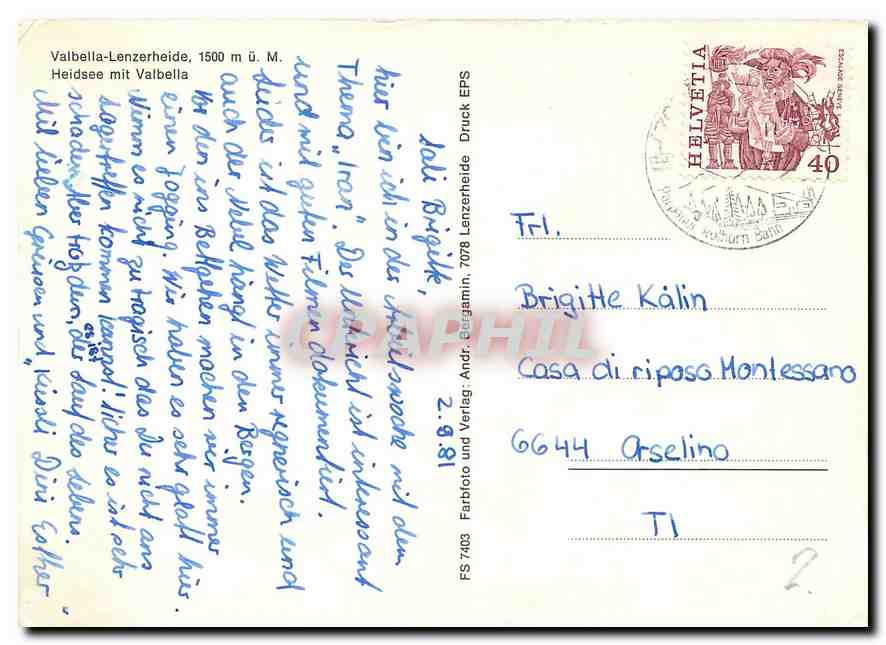 Valbella-Lenzerheide, 1500 m ü. M.
Heidsee mit Valbella
2.9.81
Sali Brigitte,
hier bin ich in der Arbeitswoche mit dem
Thema "Iran". Der Unterricht ist interessant
und mit guten Filmen dokumentiert.
Leider ist das Wetter immer regnerisch und
auch der Nebel hängt in den Bergen.
Vor den ins Bettgehen machen wir immer
einen Jogging. Wir haben es sehr glatt hier.
Nimm es nicht zu tragisch das Du nicht ans
Lagertreffen kommen kannst. Sicher es ist sehr
schaden. Aber trotzdem, es ist der Lauf des Lebens.
Mit lieben Grüssen und "Küssli Dini Esther"
FS 7403 Farbfoto und Verlag: Andr. Bergamin, 7078 Lenzerheide Druck EPS
HELVETIA
ESCALADE GENÈVE
40
Rothorn Bahn
Frl.
Brigitte Kälin
Casa di riposo Montessano
6644 Orselino
TI
2.
CPAPHIL